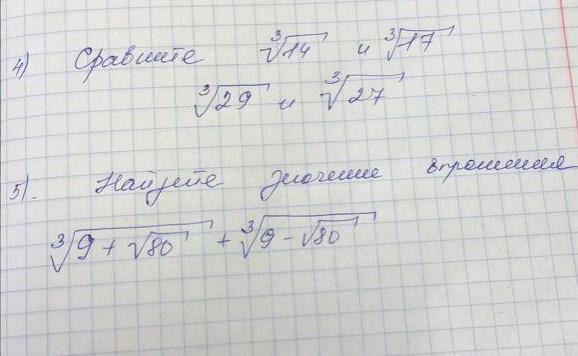 4) Сравните ∛14 и ∛17
∛29 и ∛27
5). Найдите значение выражения
∛(9 + √80) + ∛(9 - √80)